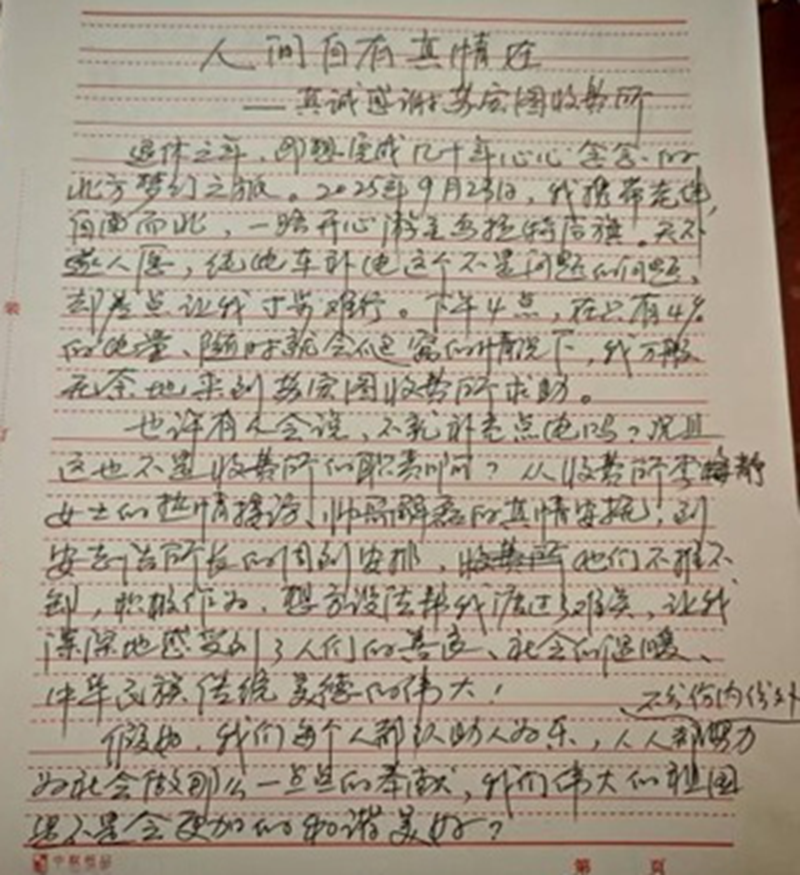 人间自有真情在
——真诚感谢苏宏图收费所
退休之年，即想完成几十年心心念念的
北方梦幻之旅。2025年9月23日，我携带老伴，
自南而北，一路开心游至乌拉特后旗。天不
遂人愿，纯电车补电这个不是问题的问题，
却差点让我寸步难行。下午4点，在只有4%
的电量、随时就会趴窝的情况下，我万般
无奈地来到苏宏图收费所求助。
也许有人会说，不就补充点电吗？况且
这也不是收费所的职责啊？从收费所李梅静
女士的热情接待、的真情安抚，到
安志治所长的周到安排，他们不推不
卸，积极作为，想方设法帮我渡过难关，让我
深深地感受到了人们的善良、社会的温暖、
中华民族传统美德的伟大！
不分份内份外
假如，我们每个人都以助人为乐，人人都努力
为社会做那么一点点的奉献，我们伟大的祖国
岂不是会更加的和谐美好？
装
第 页